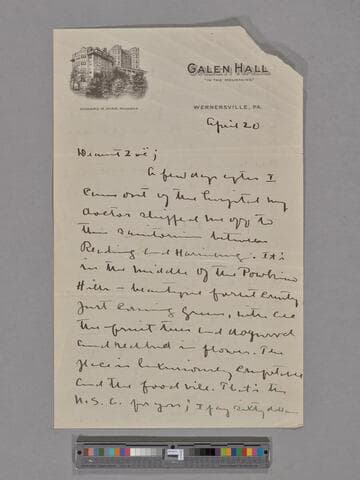 GALEN HALL
"IN THE MOUNTAINS"
WERNERSVILLE, PA.
HOWARD M. WING, MANAGER
April 20
Dearest Zoë;
A few days after I
came out of the hospital my
doctor shipped me off to
this sanitorium between
Reading and Harrisburg. It's
in the middle of the
Hills — beautiful forest country
just turning green, with all
the fruit trees and dogwood
and redbud in flower. The
place is luxuriously comfortable
and the food vile. That's the
U.S.A. for you; I pay sixty dollars